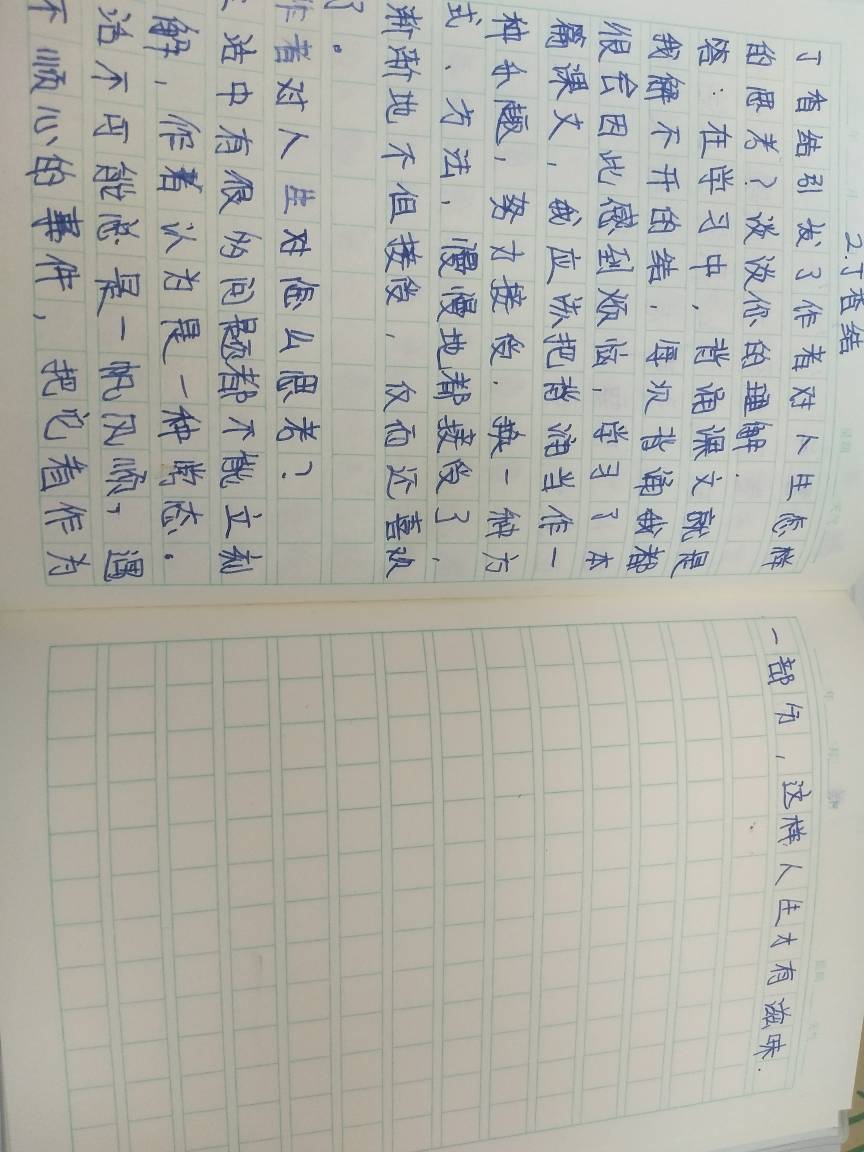 2.丁香结
丁香结引发了作者对人生怎样
的思考?谈谈你的理解.
答:在学习中,背诵课文就是
我解不开的结.每次背诵我都
很会因此感到烦恼,学习了本
篇课文,我应该把背诵当作一
种乐趣,努力接受.换一种方
式、方法,慢慢地都接受了,
渐渐地不但接受,反而还喜欢
了。
作者对人生对怎么思考?
活中有很多问题都不能立刻
解,作者认为是一种常态。
活不可能总是一帆风顺,遇
不顺心的事件,把它看作为
一部分,这样人生才有滋味.